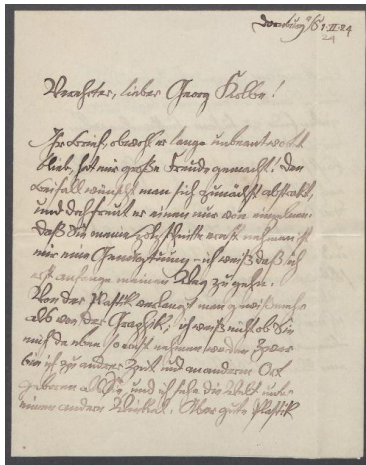 Dornburg a/S 1.II.24
Verehrter, lieber Georg Kolbe!
Ihr Brief, obwohl er lange unbeantwortet
blieb, hat mir große Freude gemacht! Den
Beifall wünscht man sich zunächst abstrakt,
und doch freut er einen nur von einzelnen.
Daß Sie meine Holzschnitte ernst nehmen ist
mir eine Genugtuung – ich weiß daß ich
erst anfange meinen Weg zu gehen.
Von der Plastik verlangt man gewiß mehr
als von der Graphik; ich weiß nicht ob Sie
mich da eben so ernst nehmen werden. Zwar
bin ich zu anderer Zeit und an anderem Ort
geboren als Sie, und ich sehe die Welt unter
einem andern Winkel. Aber gute Plastik